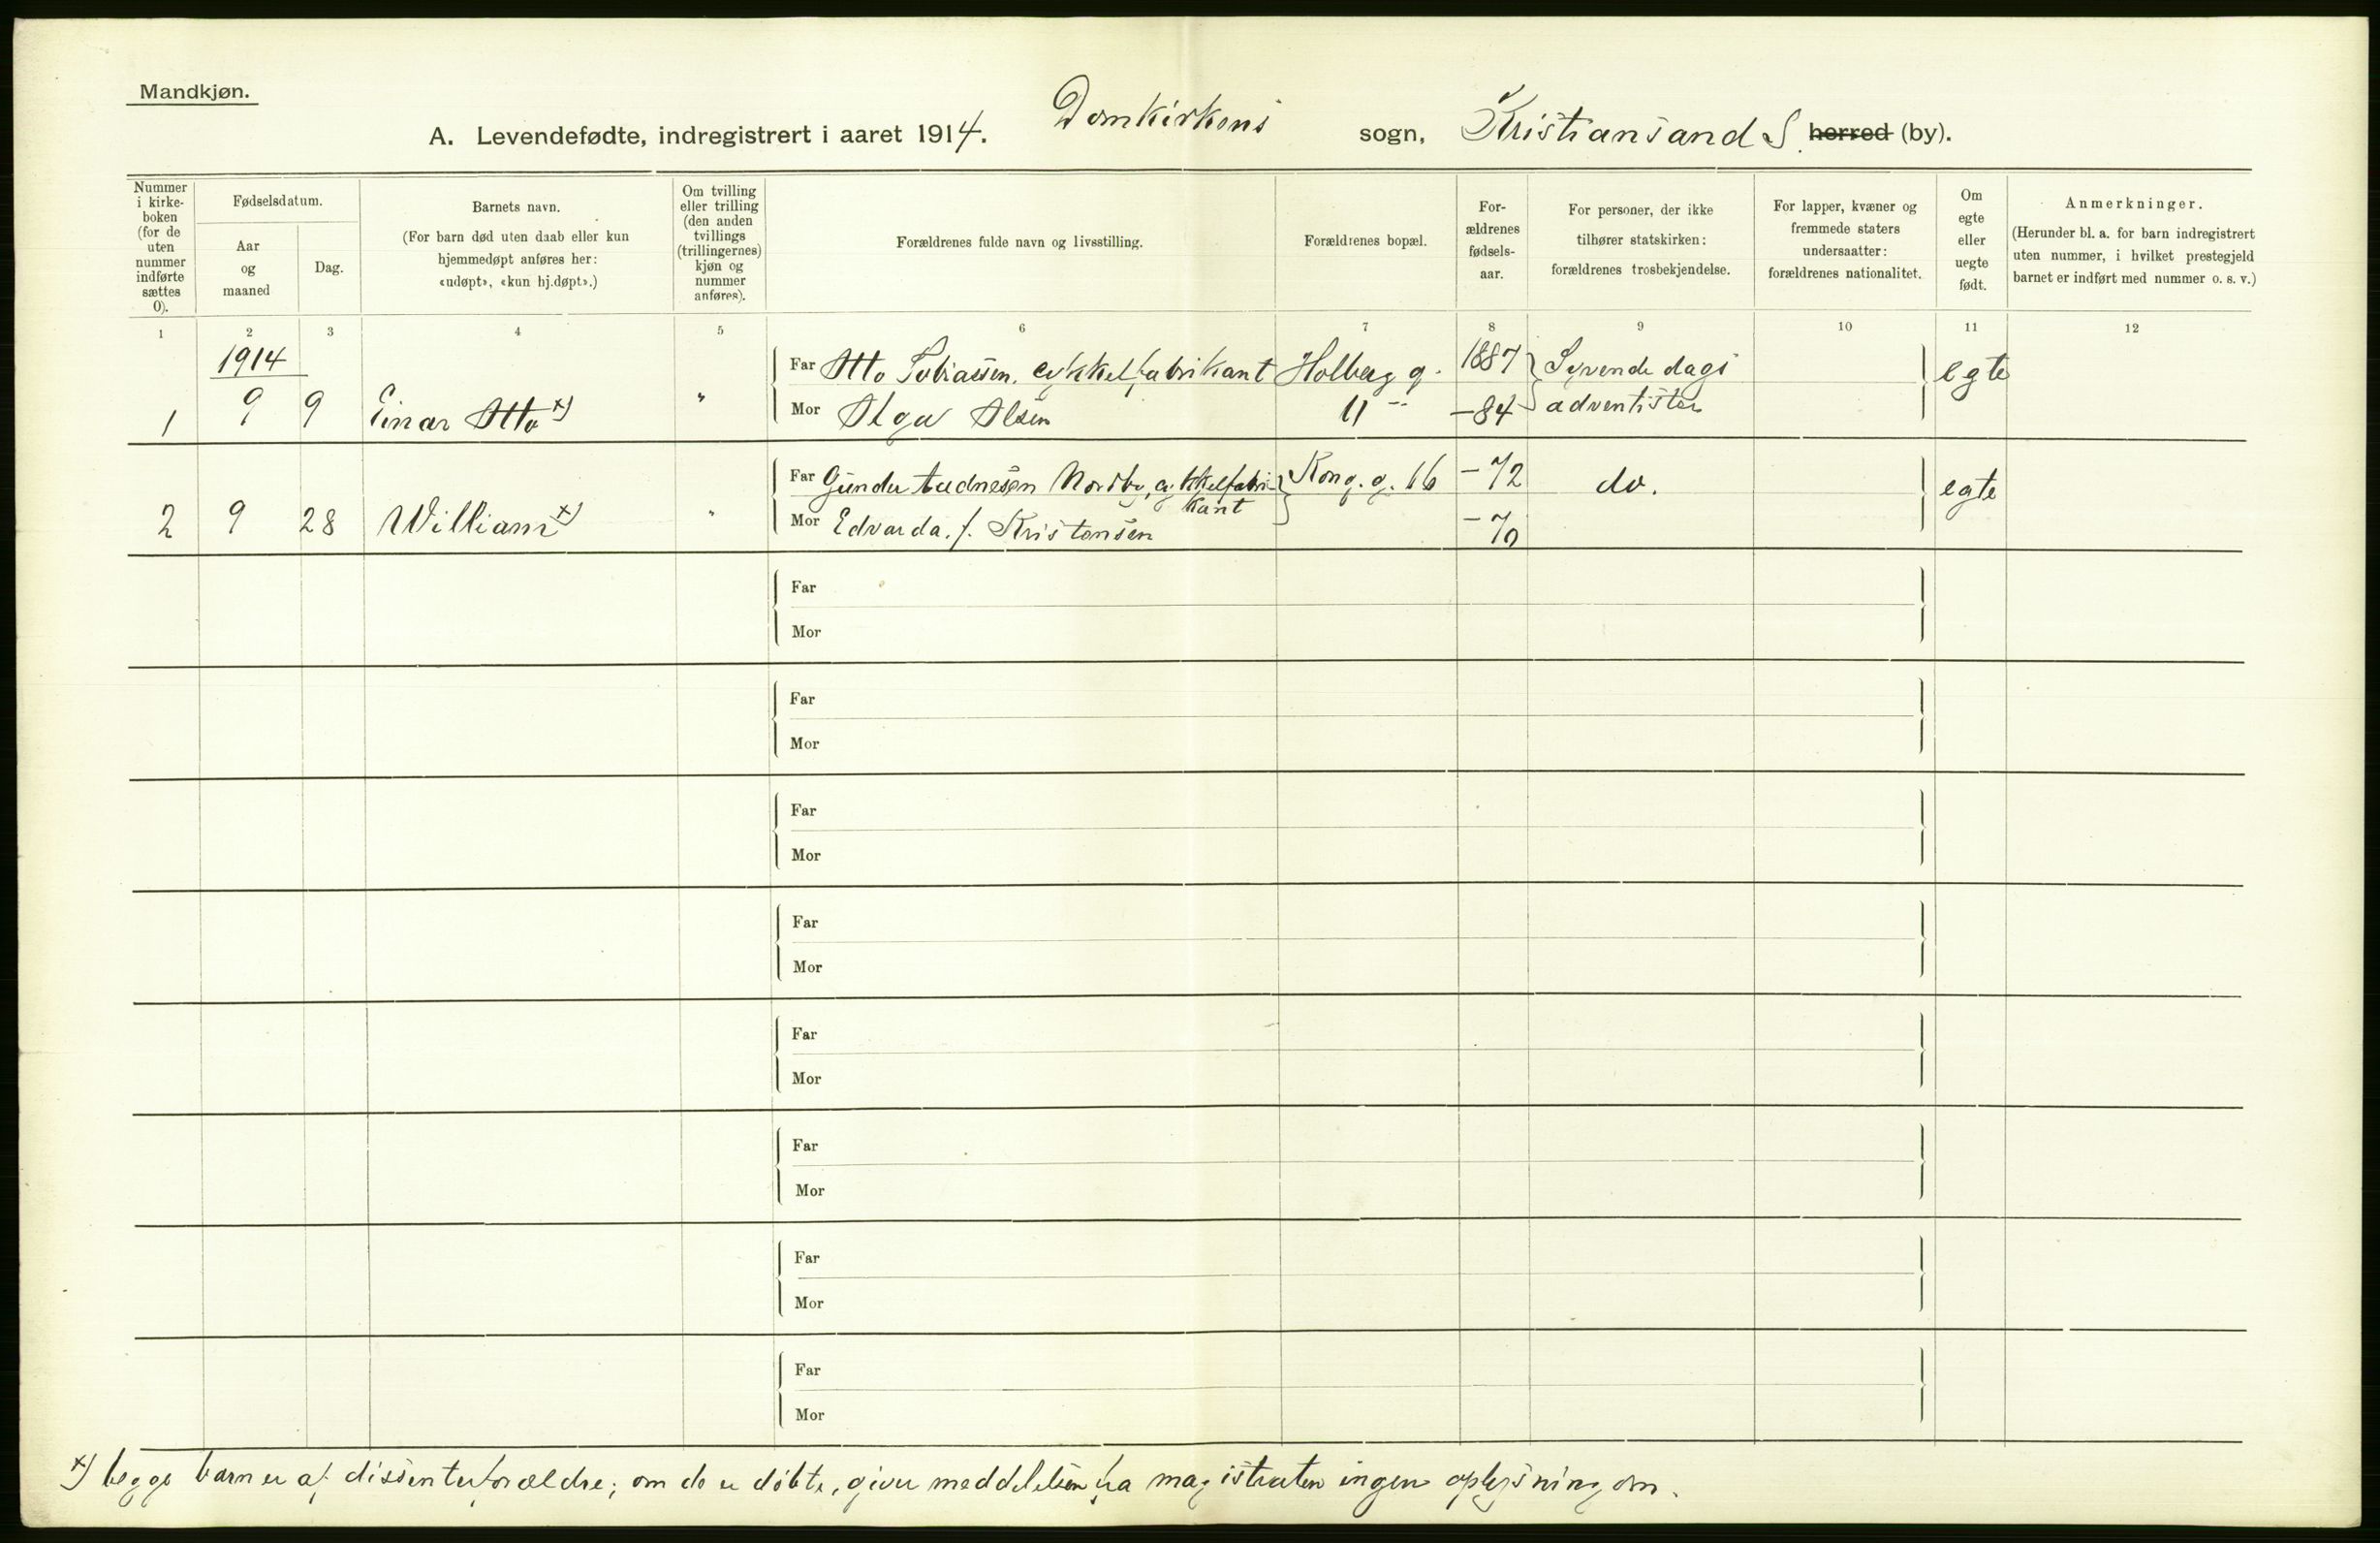 Mandkjøn.
A. Levendefødte, indregistrert i aaret 1914. Domkirkens sogn, Kristiansand S. herred (by).
Nummer i kirke- boken (for de uten nummer indførte sættes 0).
Fødselsdatum.
Aar og maaned
Dag.
Barnets navn.
(For barn død uten daab eller kun
hjemmedøpt anføres her:
«udøpt», «kun hj.døpt».)
Om tvilling
eller trilling
(den anden
tvillings
(trillingernes)
kjøn og
nummer
anføres).
Forældrenes fulde navn og livsstilling.
Forældrenes bopæl.
For-
ældrenes
fødsels-
aar.
For personer, der ikke
tilhører statskirken:
forældrenes trosbekjendelse.
For lapper, kvæner og
fremmede staters
undersaatter:
forældrenes nationalitet.
Om
egte
eller
uegte
født.
Anmerkninger.
(Herunder bl. a. for barn indregistrert
uten nummer, i hvilket prestegjeld
barnet er indført med nummer o. s. v.)
1 2 3 4 5 6 7 8 9 10 11 12
1914
Far Otto Tobiassen. cykkelfabrikant Holberg g. 1887 Syvende dags egte
1 9 9 Einar Otto x) " Mor Olga Olsen 11 -84 adventister
Far Gunder Nordby, cykkelfabri- Kong. g. 16 -72 do. egte
kant
2 9 28 William x) " Mor Edvarda. f. Kristensen -70
Far
Mor
Far
Mor
Far
Mor
Far
Mor
Far
Mor
Far
Mor
Far
Mor
Far
Mor
x) begge barn er af dissenterforældre; om de er døbte, giver meddelelsen fra magistraten ingen oplysning om.